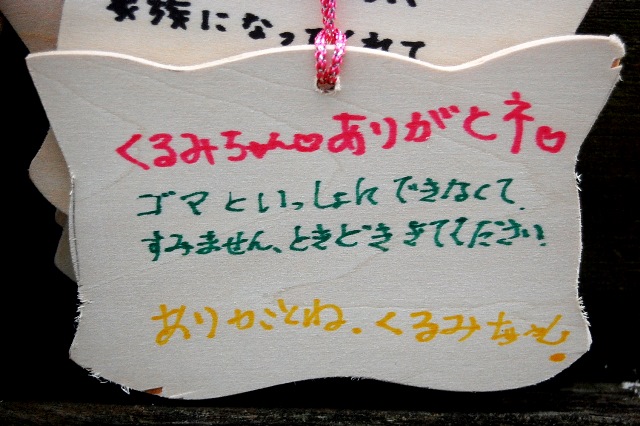 家族になってくれて
くるみちゃん♡ありがとネ♡
ゴマといっしょにできなくて、
すみません、ときどききてください
ありがとね。くるみちゃん